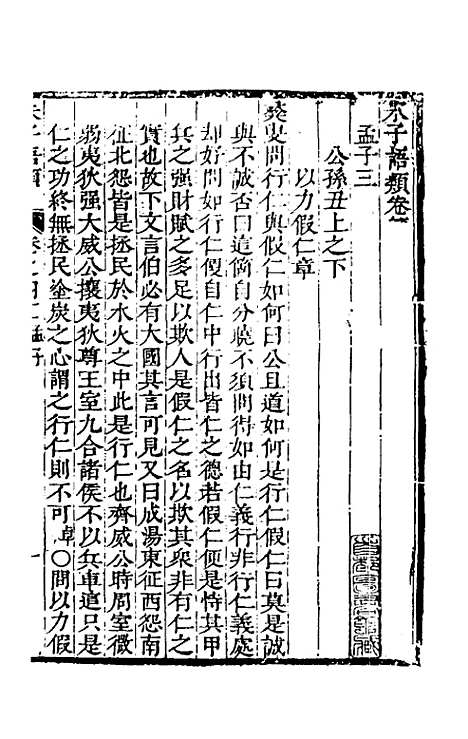 朱子語類卷
孟子三
公孫丑上之下
以力假仁章
㷸叟問行仁與假仁如何曰公且道如何是行仁假仁曰莫是誠
與不誠否曰這箇自分曉不須問得如由仁義行非行仁義處
却好問如行仁便自仁中行出皆仁之德若假仁便是恃其甲
兵之强財賦之多足以欺人是假仁之名以欺其衆非有仁之
實也故下文言伯必有大國其言可見又曰成湯東征西怨南
征北怨皆是拯民於水火之中此是行仁也齊威公時周室微
弱夷狄强大威公攘夷狄尊王室九合諸侯不以兵車這只是
仁之功終無拯民塗炭之心謂之行仁則不可 〇問以力假